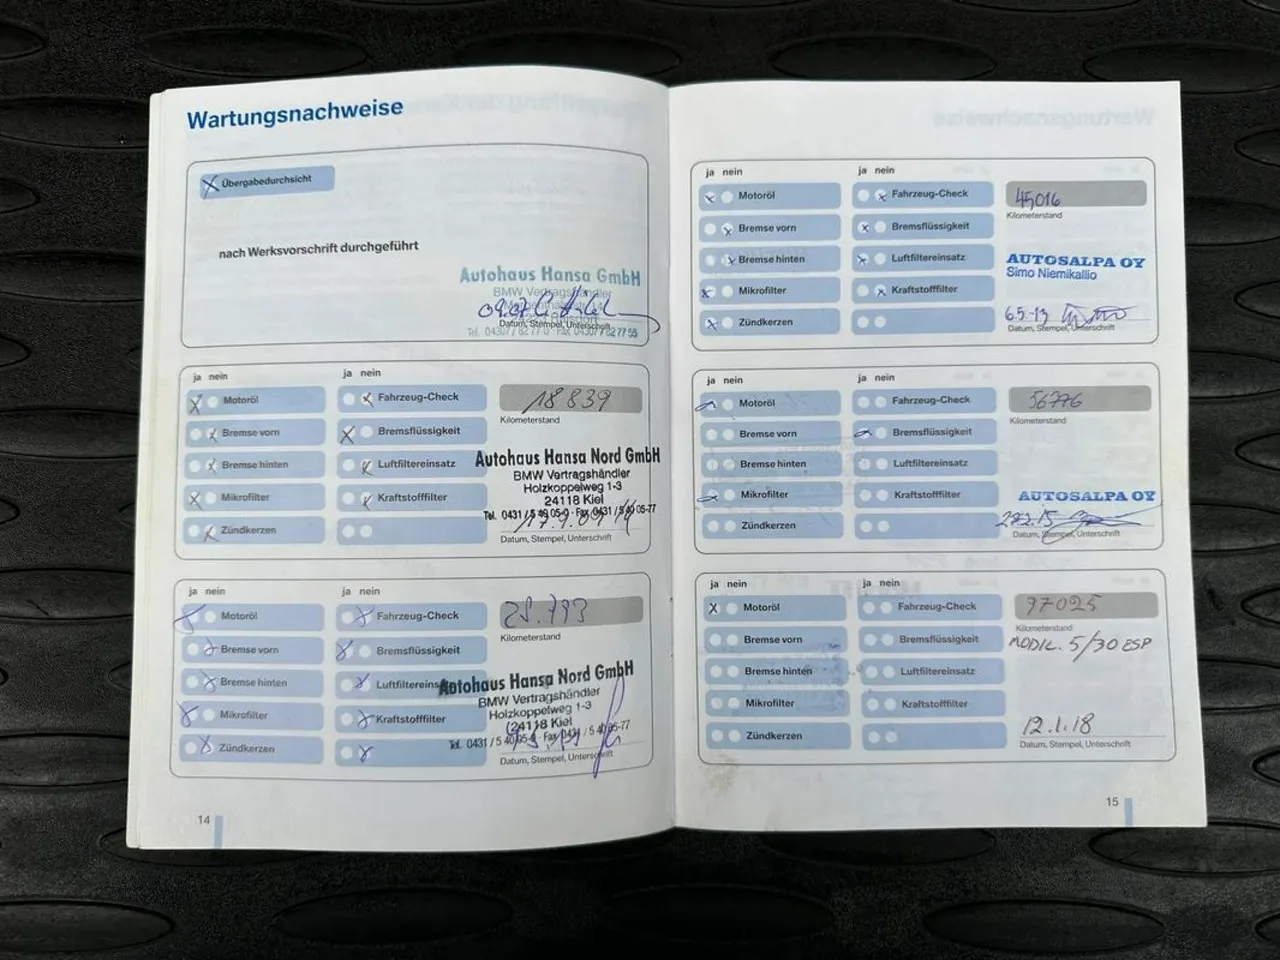 Wartungsnachweise
Übergabedurchsicht
nach Werksvorschrift durchgeführt
Autohaus Hansa GmbH
BMW Vertragshändler
09.07
Datum, Stempel, Unterschrift
Tel. 04307 / 82 77-0 · Fax 04307 / 82 77 55
ja nein
ja nein
Motoröl
Fahrzeug-Check
18 839
Kilometerstand
Bremse vorn
Bremsflüssigkeit
Bremse hinten
Luftfiltereinsatz
Mikrofilter
Kraftstofffilter
Zündkerzen
Autohaus Hansa Nord GmbH
BMW Vertragshändler
Holzkoppelweg 1-3
24118 Kiel
Tel. 0431 / 5 49 05-0 · Fax 0431 / 5 49 05-77
17.9.09
Datum, Stempel, Unterschrift
ja nein
ja nein
Motoröl
Fahrzeug-Check
Kilometerstand
Bremse vorn
Bremsflüssigkeit
Bremse hinten
Mikrofilter
Kraftstofffilter
Zündkerzen
Autohaus Hansa Nord GmbH
BMW Vertragshändler
Holzkoppelweg 1-3
24118 Kiel
Datum, Stempel, Unterschrift
14
ja nein
ja nein
Motoröl
Fahrzeug-Check
45016
Kilometerstand
Bremse vorn
Bremsflüssigkeit
Bremse hinten
Luftfiltereinsatz
Mikrofilter
Kraftstofffilter
Zündkerzen
AUTOSALPA OY
Simo Niemikallio
6.5.-13
Datum, Stempel, Unterschrift
ja nein
ja nein
Motoröl
Fahrzeug-Check
56776
Kilometerstand
Bremse vorn
Bremsflüssigkeit
Bremse hinten
Luftfiltereinsatz
Mikrofilter
Kraftstofffilter
Zündkerzen
AUTOSALPA OY
Datum, Stempel, Unterschrift
ja nein
ja nein
Motoröl
Fahrzeug-Check
97025
Kilometerstand
Bremse vorn
Bremsflüssigkeit
MOBIL. 5/30 ESP
Bremse hinten
Luftfiltereinsatz
Mikrofilter
Kraftstofffilter
Zündkerzen
12.1.18
Datum, Stempel, Unterschrift
15